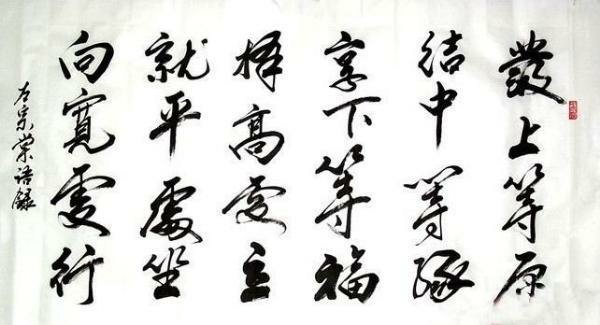 發上等原
结中等缘
享下等福
择高處立
就平處坐
向寬處行
左宗棠语録